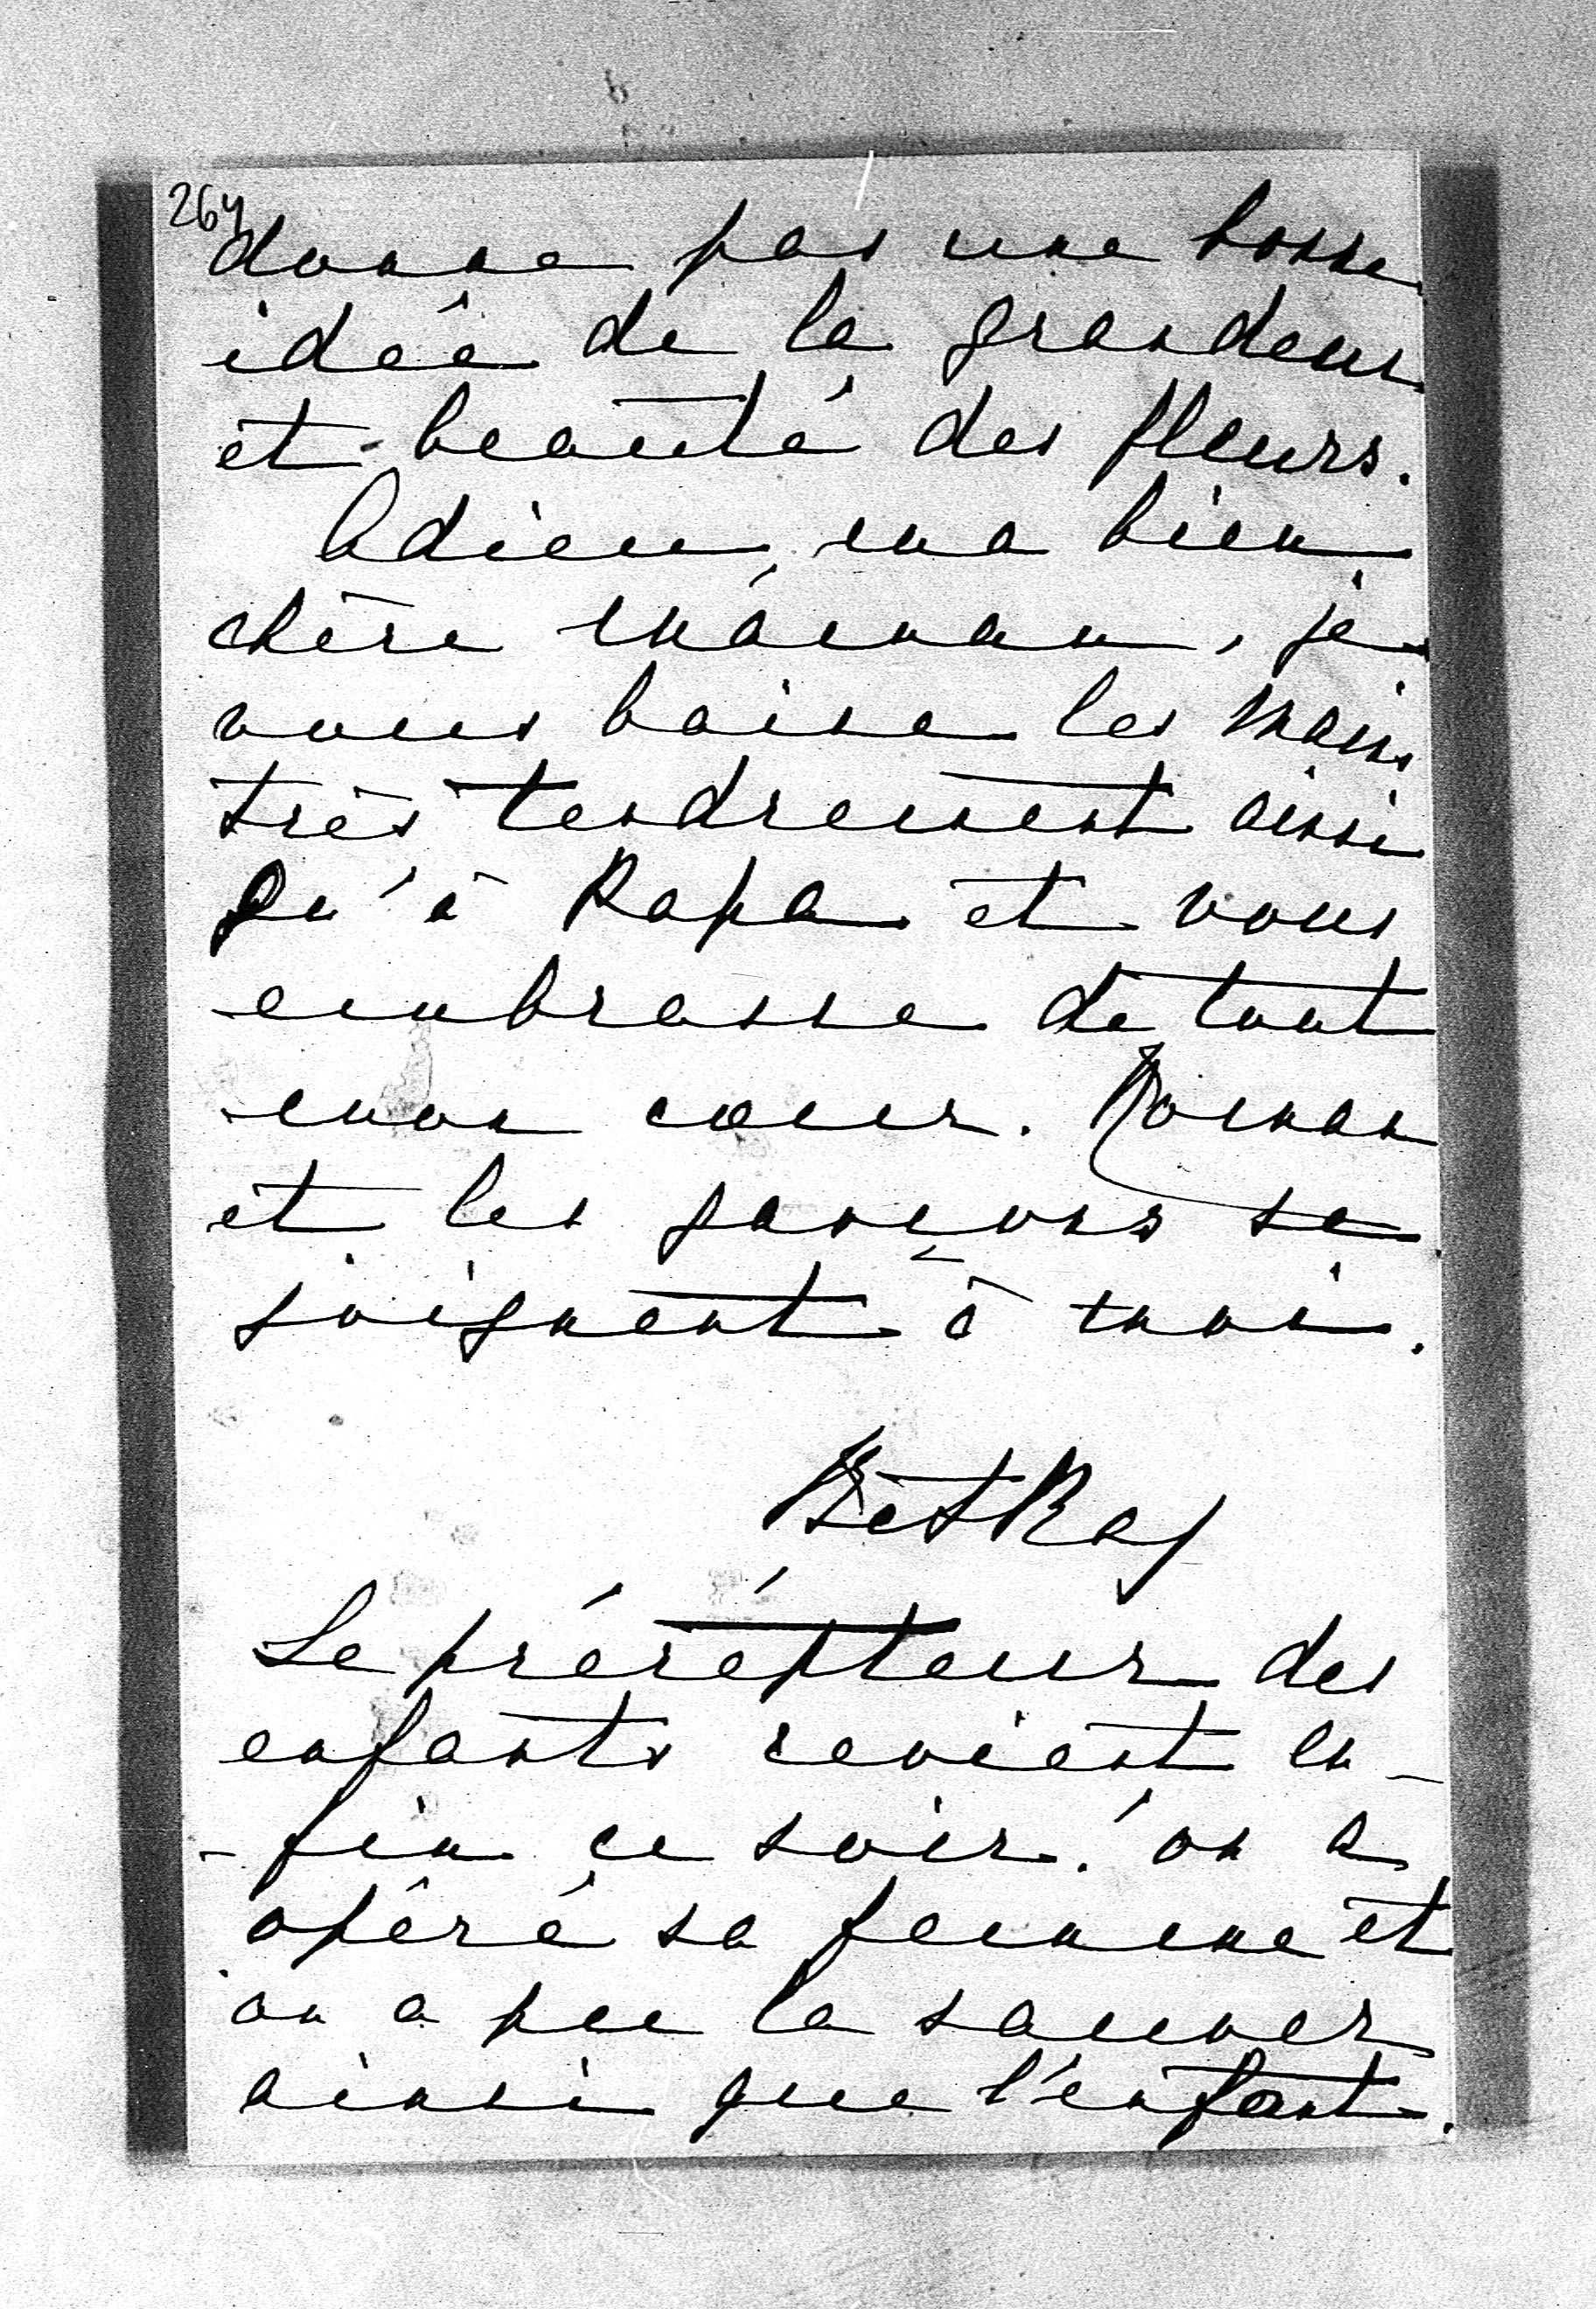 264
donne pas une bonne
idée de la grandeur
et beauté des fleurs.
Adieu, ma bien
chère máman, je
vous baise les mains
très tendrement ainsi
qu'à Papa et vous
embrasse de tout
mon cœur. Roman
et les garçons se
joignent à moi.
BetRay
Le précépteur des
enfants revient en-
-fin ce soir! on a
opéré sa femme et
on a pu la sauver
ainsi que l'enfant.